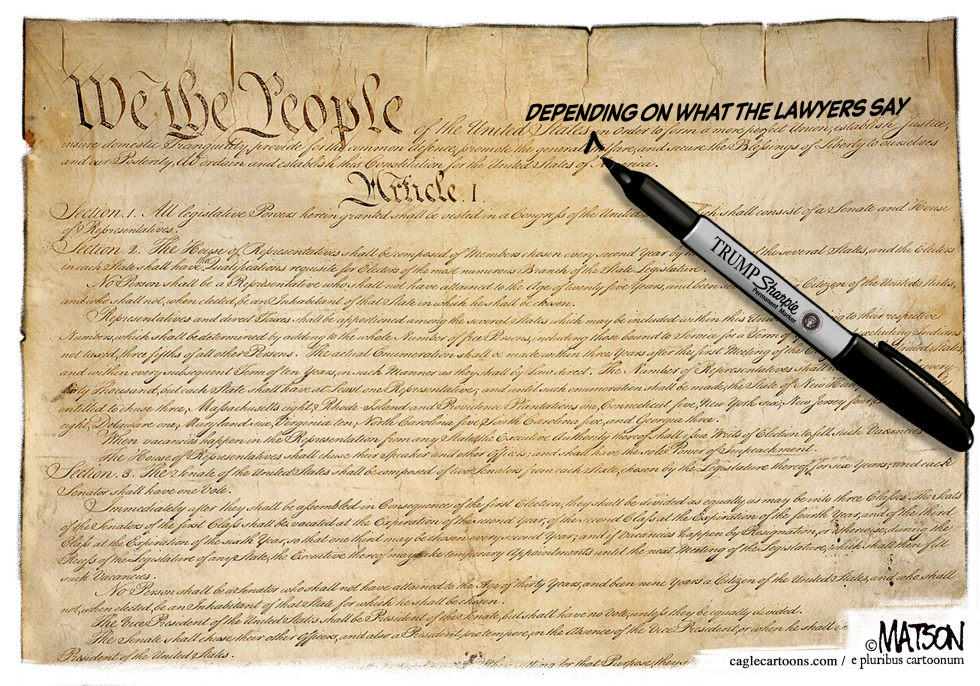 DEPENDING ON WHAT THE LAWYERS SAY
We the People of the United States, in Order to form a more perfect Union, establish Justice,
insure domestic Tranquility, provide for the common defence, promote the general and secure the Blessings of Liberty to ourselves
and our Posterity, do ordain and establish this Constitution for the United States of America.
Article. I.
Section. 1. All legislative Powers herein granted shall be vested in a Congreſs of the United shall consist of a Senate and House
of Representatives.
Section. 2. The House of Representatives shall be composed of Members chosen every second Year by the several States, and the Electors
in each State shall have the Qualifications requisite for Electors of the most numerous Branch of the State Legislature.
No Person shall be a Representative who shall not have attained to the Age of twenty five Years, and been Citizen of the United States,
and who shall not, when elected, be an Inhabitant of that State in which he shall be chosen.
Representatives and direct Taxes shall be apportioned among the several States which may be included within this to their respective
Numbers, which shall be determined by adding to the whole Number of free Persons, including those bound to Service for a Term of excluding Indians
not taxed, three fifths of all other Persons. The actual Enumeration shall be made within three Years after the first Meeting of the United States,
and within every subsequent Term of ten Years, in such Manner as they shall by Law direct. The Number of Representatives shall every
thirty Thousand, but each State shall have at Least one Representative; and until such enumeration shall be made, the State of New
entitled to chuse three, Massachusetts eight, Rhode Island and Providence Plantations one, Connecticut five, New York six, New Jersey four,
eight, Delaware one, Maryland six, Virginia ten, North Carolina five, South Carolina five, and Georgia three.
When vacancies happen in the Representation from any State, the Executive Authority thereof shall iſsue Writs of Election to fill such Vacancies.
The House of Representatives shall chuse their Speaker and other Officers; and shall have the sole Power of Impeachment.
Section. 3. The Senate of the United States shall be composed of two Senators from each State, chosen by the Legislature thereof, for six Years; and each
Senator shall have one Vote.
Immediately after they shall be aſsembled in Consequence of the first Election, they shall be divided as equally as may be into three Claſses. The Seats
of the Senators of the first Claſs shall be vacated at the Expiration of the second Year, of the second Claſs at the Expiration of the fourth Year, and of the third
Claſs at the Expiration of the sixth Year, so that one third may be chosen every second Year; and if Vacancies happen by Resignation, or otherwise, during the
Receſs of the Legislature of any State, the Executive thereof may make temporary Appointments until the next Meeting of the Legislature, which shall then fill
such Vacancies.
No Person shall be a Senator who shall not have attained to the Age of thirty Years, and been nine Years a Citizen of the United States, and who shall
not, when elected, be an Inhabitant of that State for which he shall be chosen.
The Vice President of the United States shall be President of the Senate, but shall have no Vote, unleſs they be equally divided.
The Senate shall chuse their other Officers, and also a President pro tempore, in the Absence of the Vice President, or when he shall
President of the United States.
for that Purpose, they
TRUMP Sharpie
Permanent Marker
© MATSON
caglecartoons.com / e pluribus cartoonum